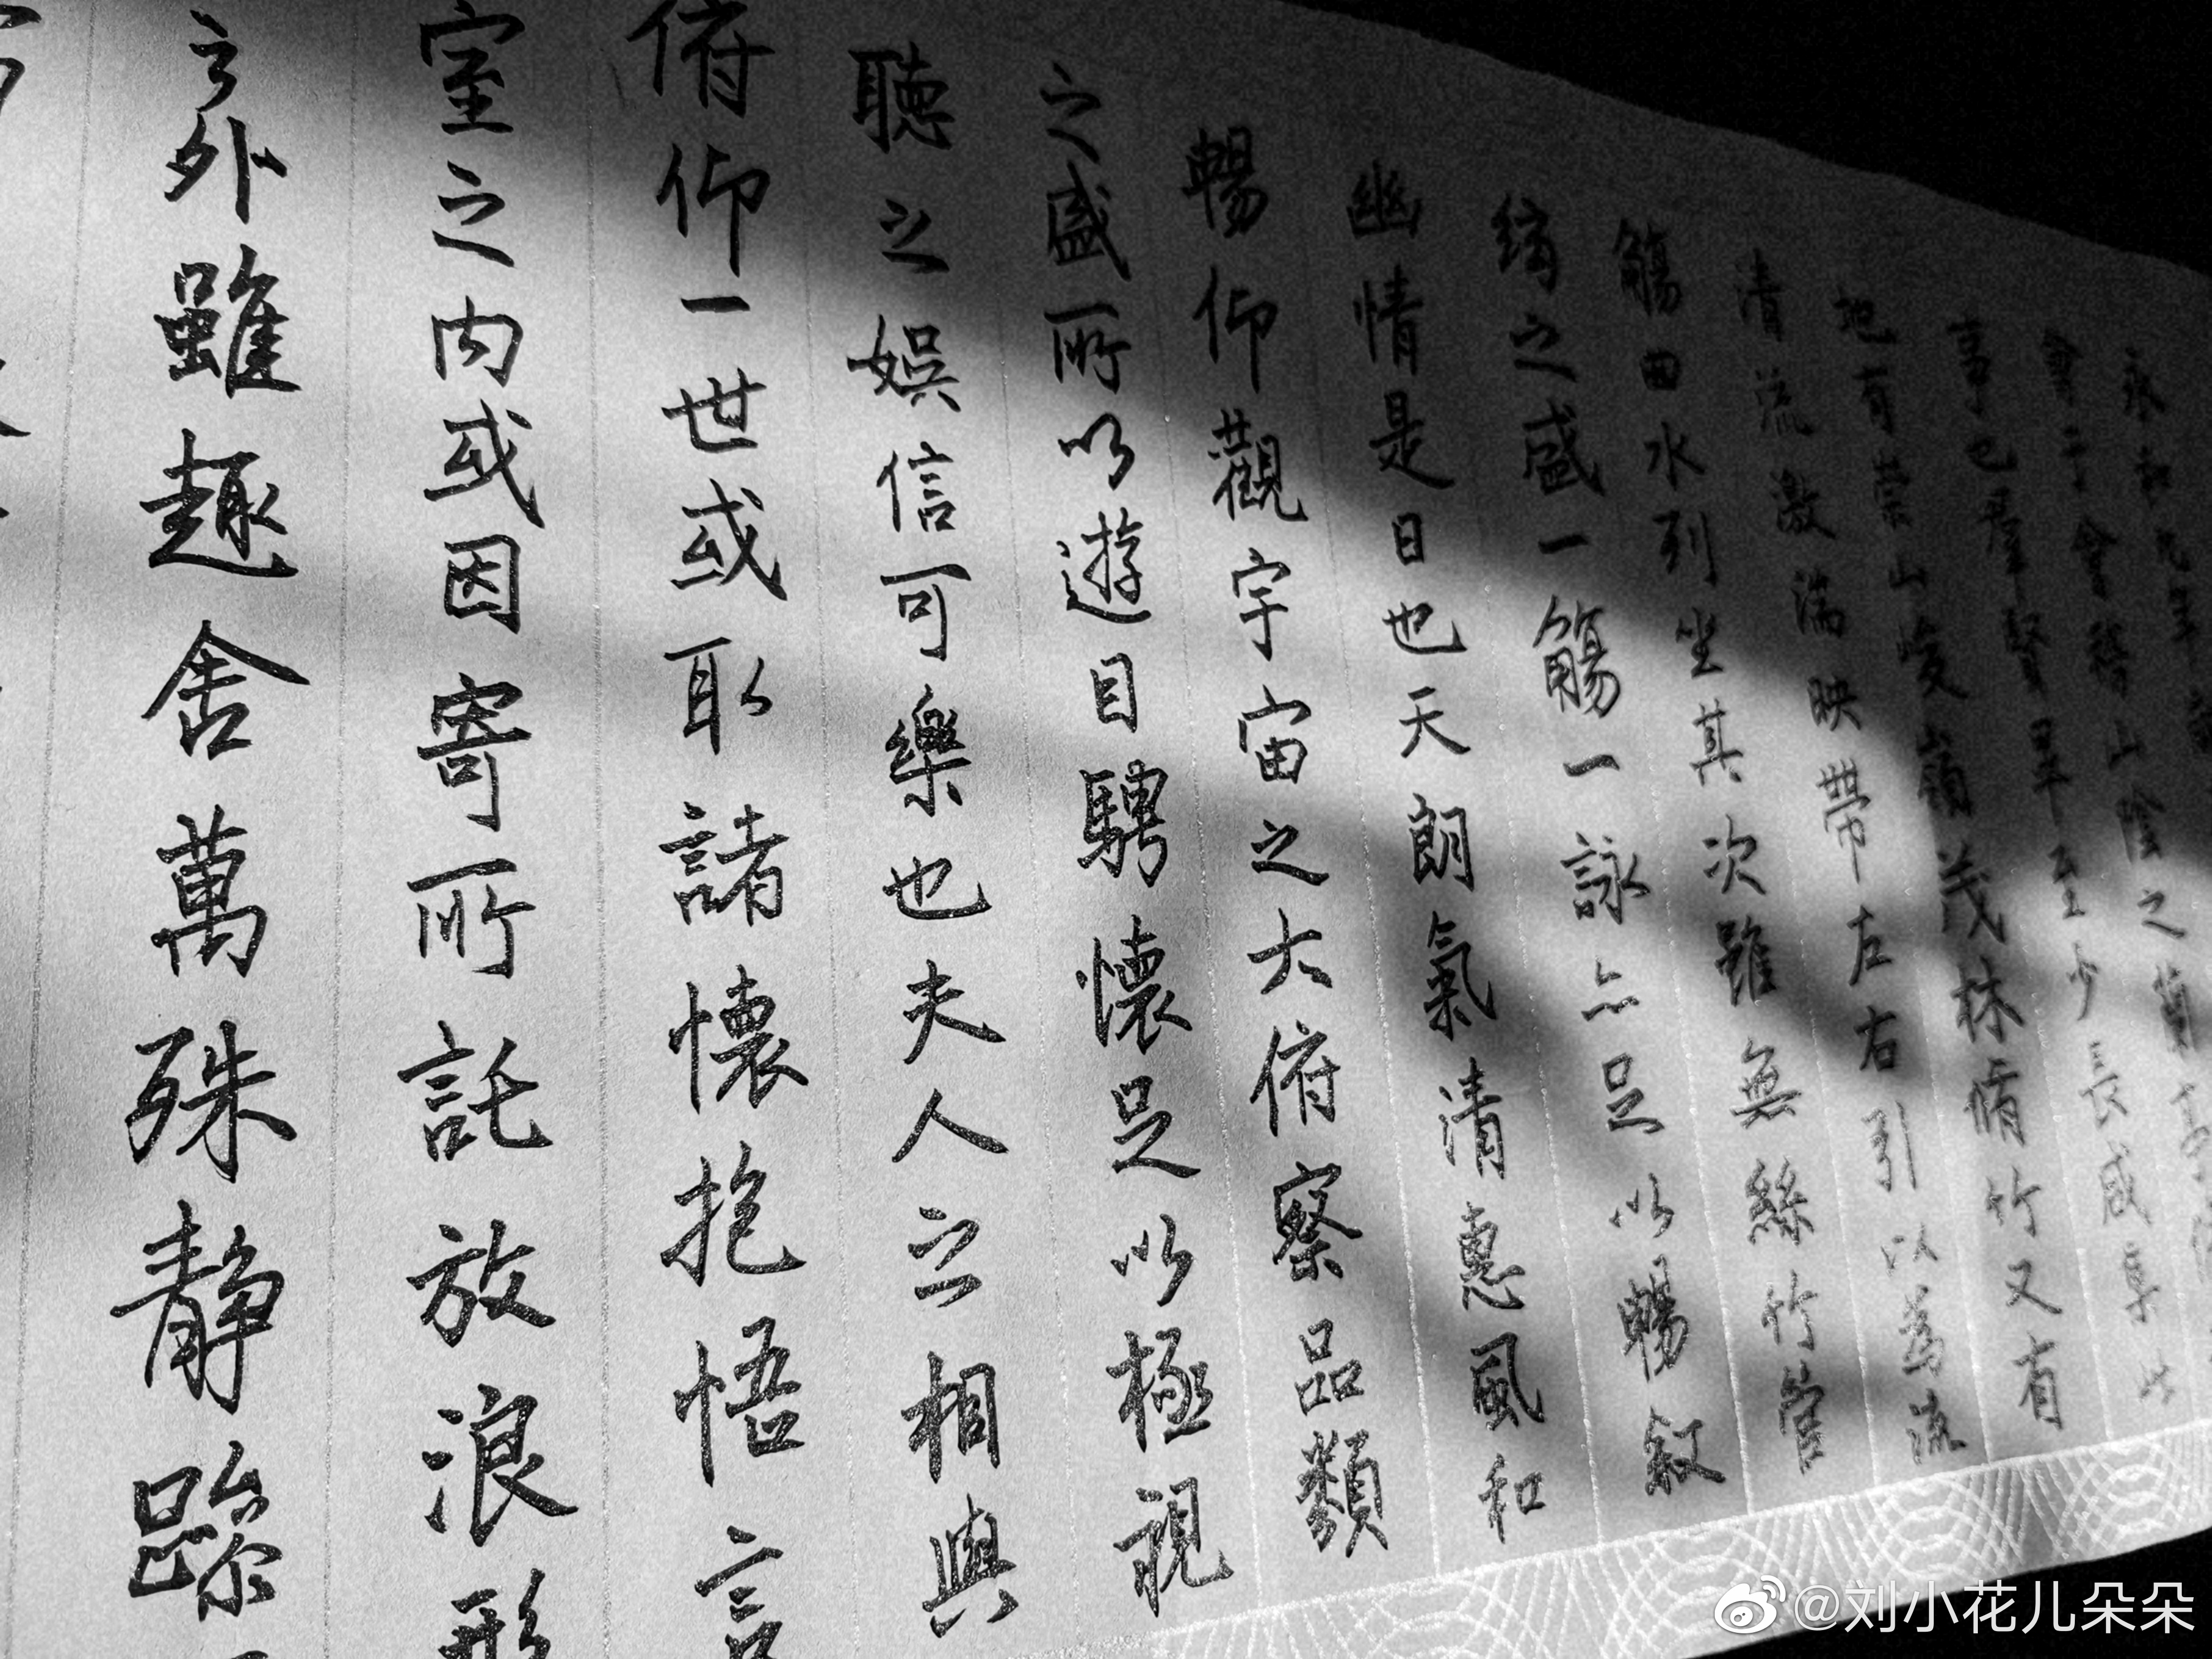 永和九年歲
會于會稽山陰之蘭亭脩
事也羣賢畢至少長咸集此
地有崇山峻嶺茂林脩竹又有
清流激湍映帶左右引以為流
觴曲水列坐其次雖無絲竹管
絃之盛一觴一詠亦足以暢叙
幽情是日也天朗氣清惠風和
暢仰觀宇宙之大俯察品類
之盛所以遊目騁懷足以極視
聽之娛信可樂也夫人之相與
俯仰一世或取諸懷抱悟言
室之内或因寄所託放浪形
之外雖趣舍萬殊静躁
@刘小花儿朵朵